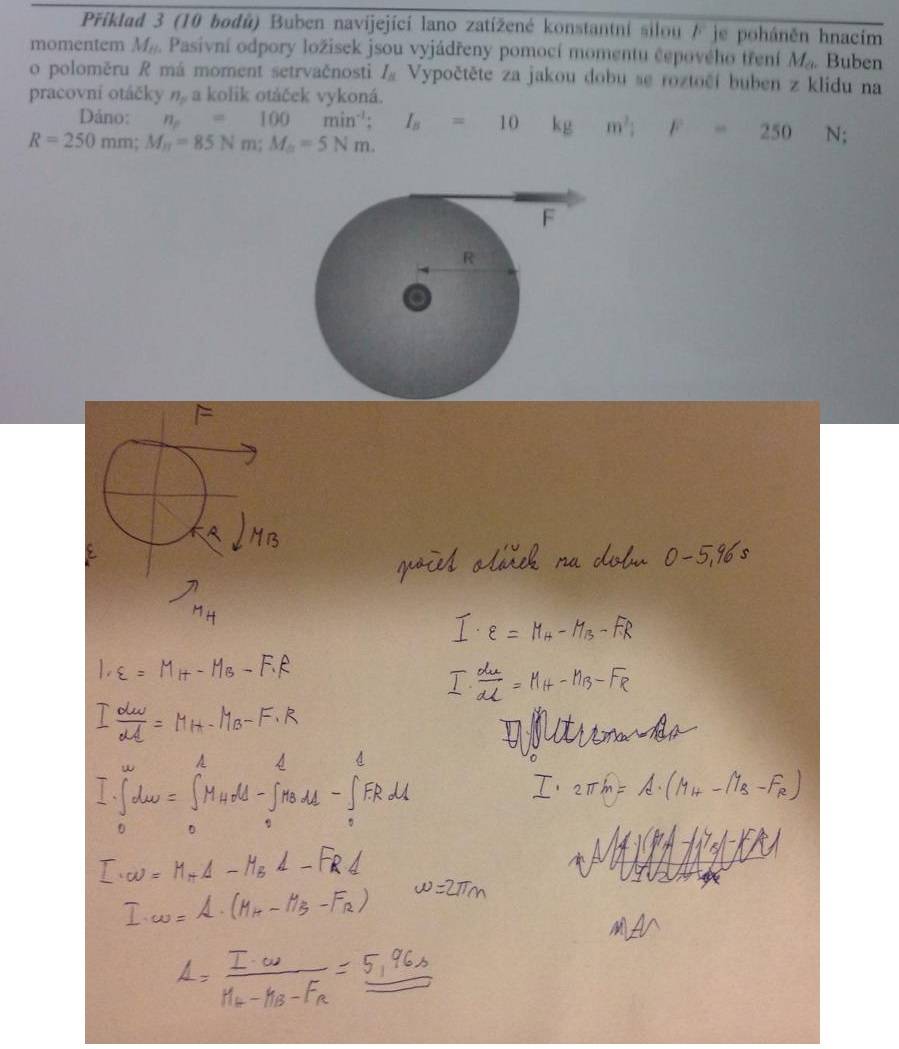 Příklad 3 (10 bodů) Buben navíjející lano zatížené konstantní silou F je poháněn hnacím
momentem M_H. Pasivní odpory ložisek jsou vyjádřeny pomocí momentu čepového tření M_čt. Buben
o poloměru R má moment setrvačnosti I_B. Vypočtěte za jakou dobu se roztočí buben z klidu na
pracovní otáčky n_p a kolik otáček vykoná.
Dáno: n_p = 100 min⁻¹; I_B = 10 kg m²; F = 250 N;
R = 250 mm; M_H = 85 N m; M_čt = 5 N m.
F
R
F
R
M_B
ε
M_H
počet otáček na dobu 0-5,96 s
I·ε = M_H - M_B - F·R
I dω/dt = M_H - M_B - F·R
I·∫₀^ω dω = ∫₀^t M_H dt - ∫₀^t M_B dt - ∫₀^t F·R dt
I·ω = M_H t - M_B t - F R t
I·ω = t·(M_H - M_B - F_R)
ω = 2πn
t = I·ω / (M_H - M_B - F_R) = 5,96 s
I·ε = M_H - M_B - F·R
I·dω/dt = M_H - M_B - F_R
I·2πn = t·(M_H - M_B - F_R)